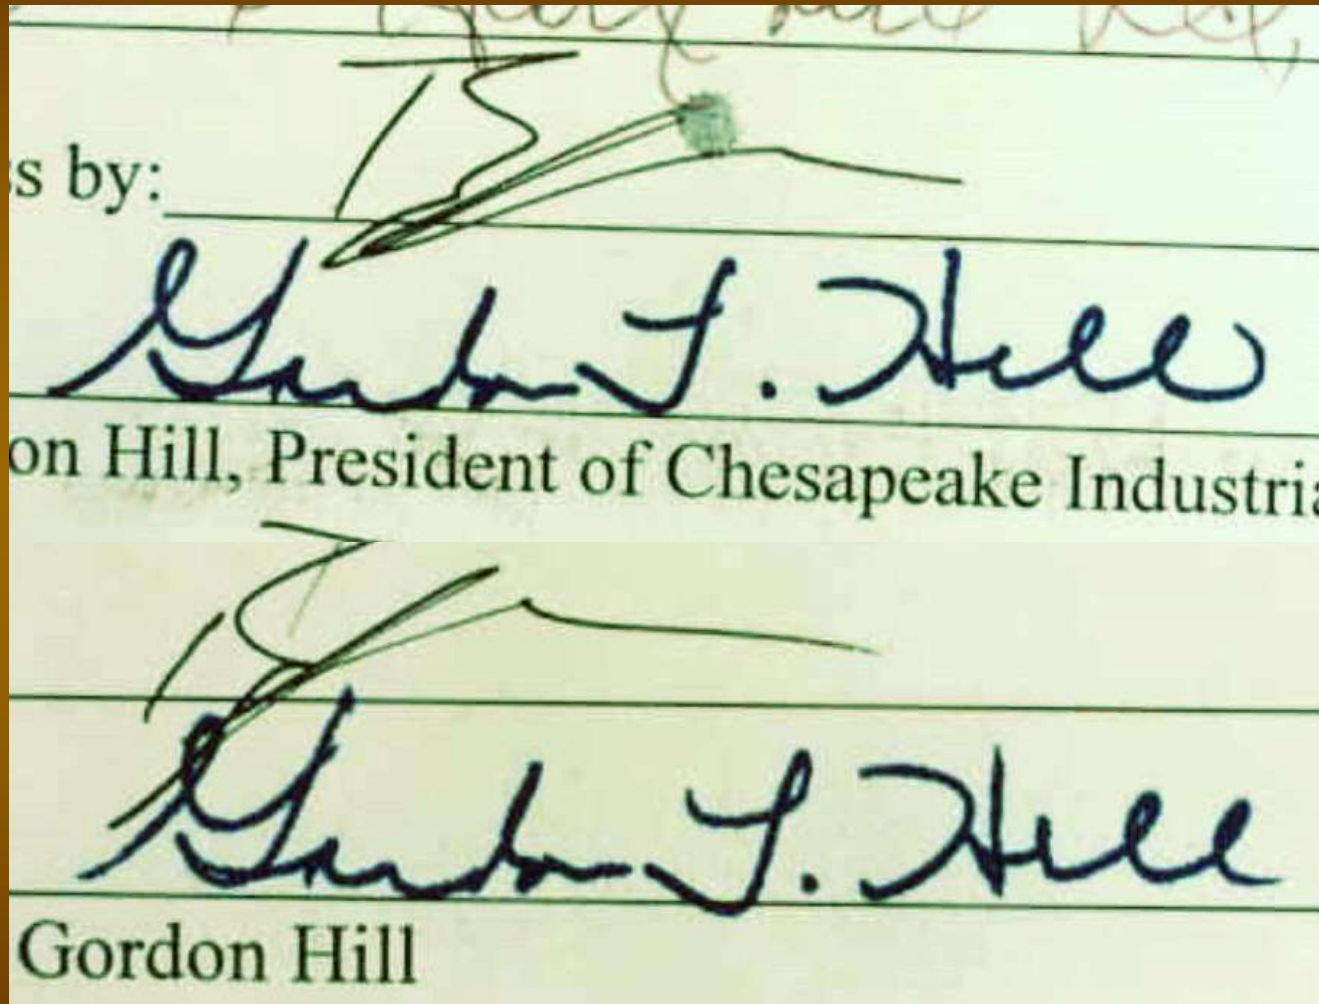 s by:
Gordon T. Hill
on Hill, President of Chesapeake Industria
Gordon T. Hill
Gordon Hill